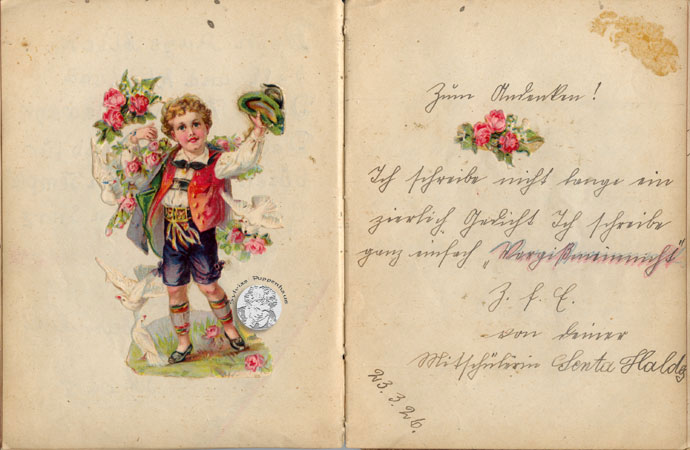 Zum Andenken!
Ich schreibe nicht lange ein
zierlich Gedicht Ich schreibe
ganz einfach „Vergißmeinnicht"
Z. f. E.
von deiner
Mitschülerin Senta
23.3.26.
Sylvias Puppenhaus